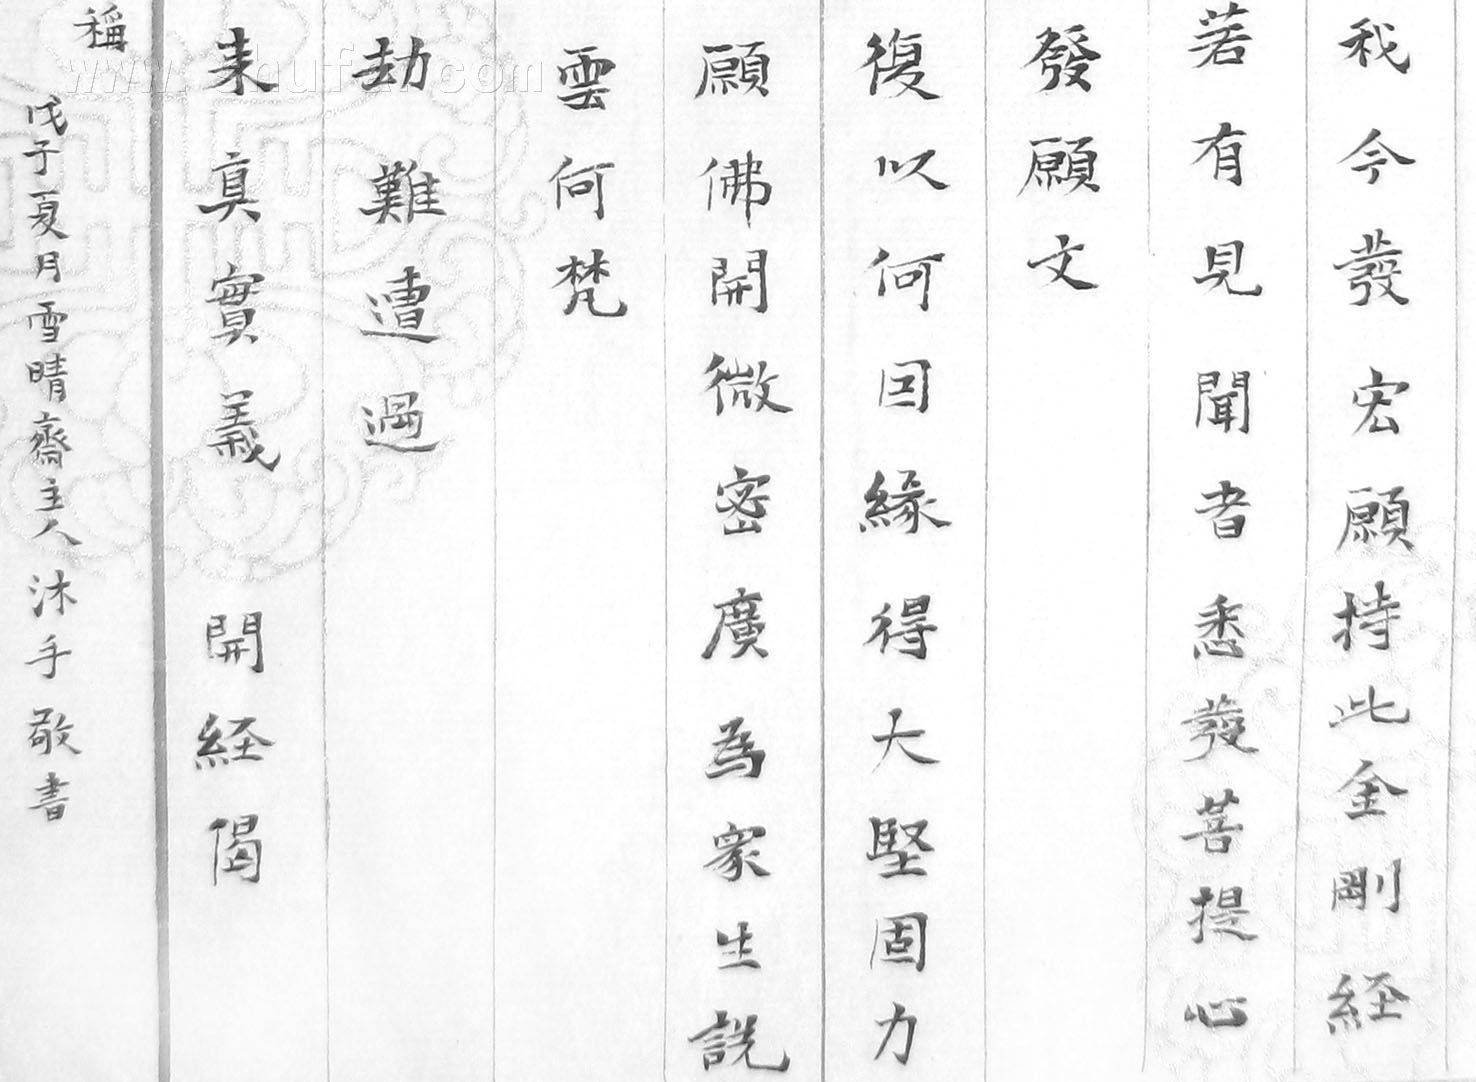 我今發宏願持此金剛経
若有見聞者悉發菩提心
發願文
復以何囙緣得大堅固力
願佛開微密廣為衆生説
雲何梵
劫難遭遇
来真實義 開経偈
稱
戊子夏月雪晴齋主人沐手敬書
www.shufa.com